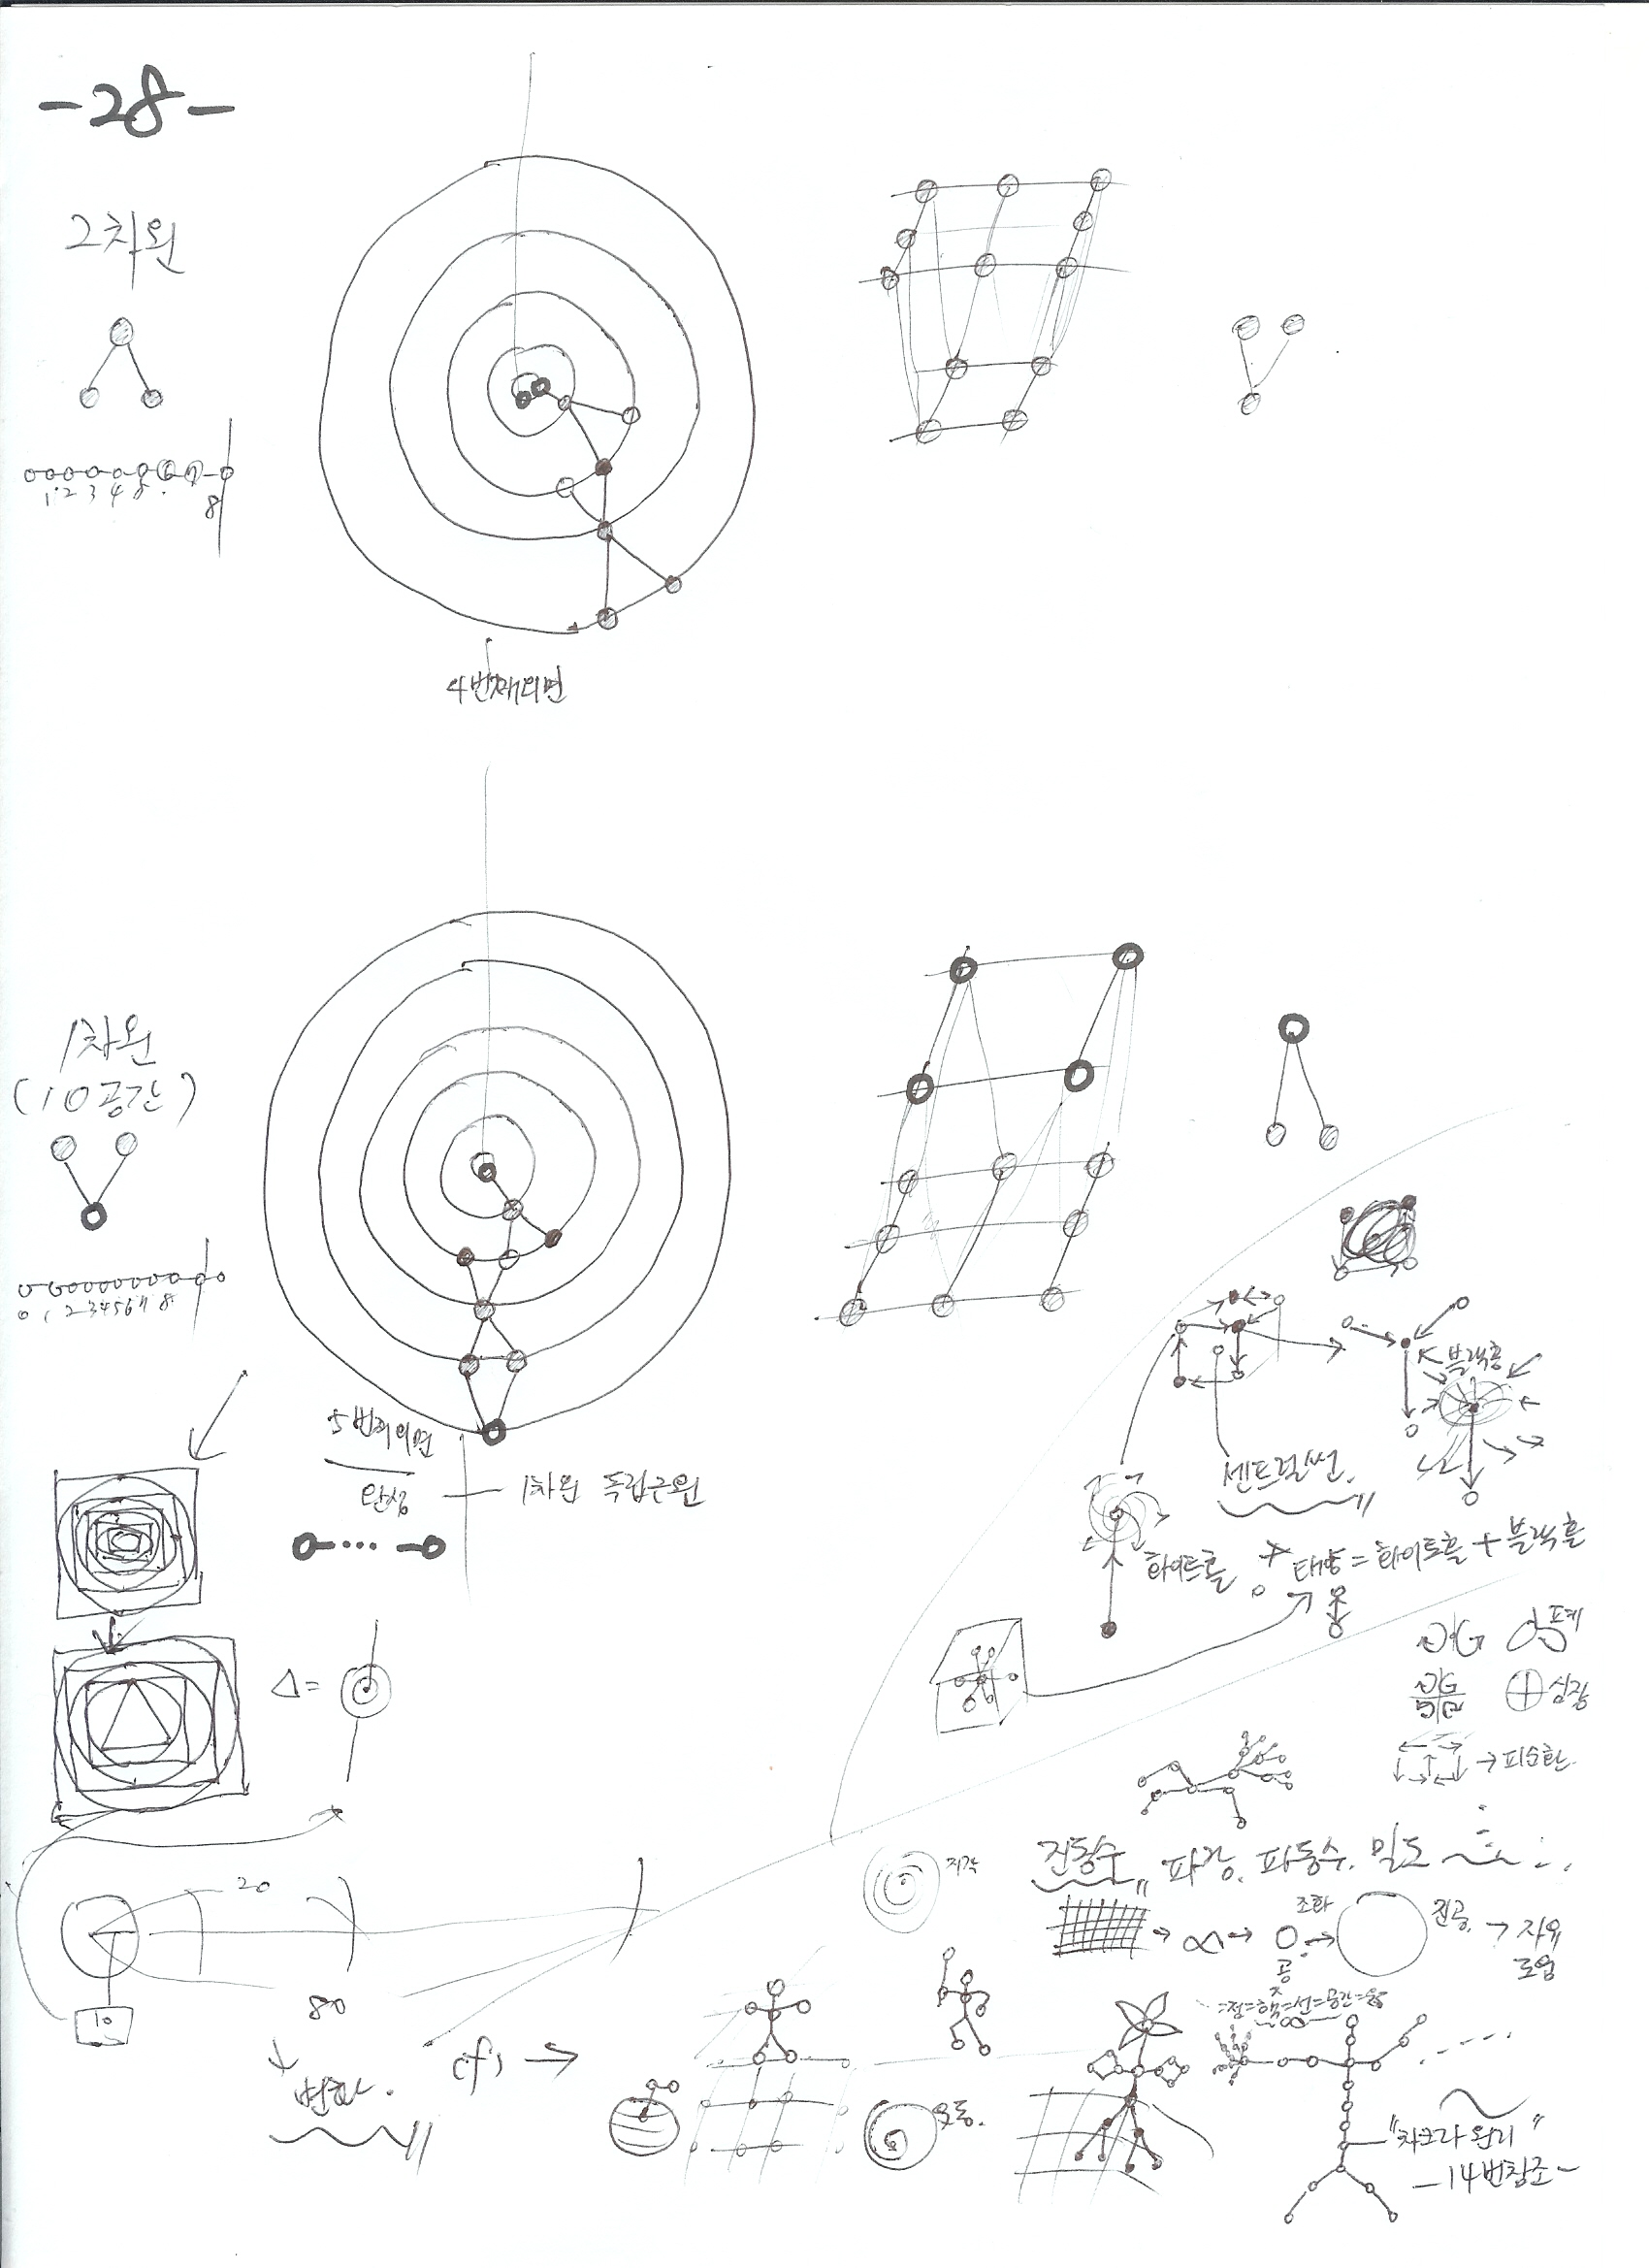 -28-
2차원
1 2 3 4 5
8
4번째외면
1차원
(10공간)
0 1 2 3 4 5 6 7 8
5번째외면
완성
1차원 독립근원
블랙홀
센트럴썬
화이트홀
태양 = 화이트홀 + 블랙홀
심장
→ 피순환
Δ=
지각
진동수, 파장, 파동수, 밀도
조화
공
진공
→ 자유
로움
20
80
10
변화.
cf) →
운동.
=점=핵=선=공간=
"차크라 원리"
-14번참조-